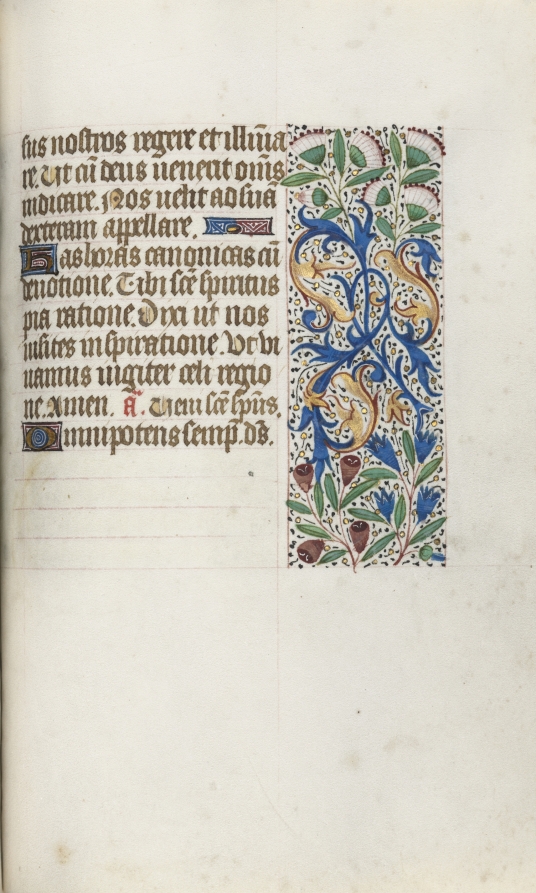 sus nostros regere et illūīa
re. Ut cū deus uenerit oīm̄s
iudicare. Nos uelit ad suā
dexteram appellare.
Has horas canonicas cū
deuotione. Tibi scē spiritus
pia ratione. Dixi ut nos
uisites inspiratione. Vt vi
uamus iugiter celi regio
ne. Amen. ā. Veni scē spūs.
Omnipotens semp̄. ds̄.